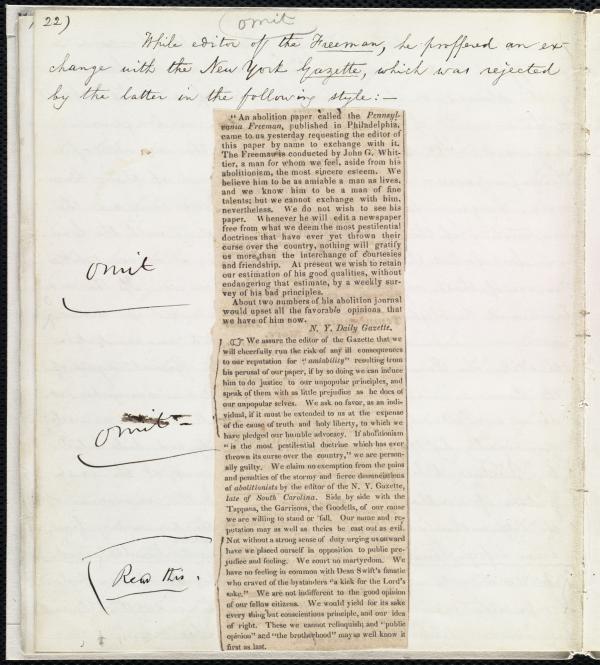 22)
(omit
While editor of the Freeman, he proffered an ex-
change with the New York Gazette, which was rejected
by the latter in the following style:—
"An abolition paper called the Pennsyl-
vania Freeman, published in Philadelphia,
came to us yesterday requesting the editor of
this paper by name to exchange with it.
The Freeman is conducted by John G. Whit-
tier, a man for whom we feel, aside from his
abolitionism, the most sincere esteem. We
believe him to be as amiable a man as lives,
and we know him to be a man of fine
talents; but we cannot exchange with him,
nevertheless. We do not wish to see his
paper. Whenever he will edit a newspaper
free from what we deem the most pestilential
doctrines that have ever yet thrown their
curse over the country, nothing will gratify
us more than the interchange of courtesies
and friendship. At present we wish to retain
our estimation of his good qualities, without
endangering that estimate, by a weekly sur-
vey of his bad principles.
About two numbers of his abolition journal
would upset all the favorable opinions that
we have of him now.
N. Y. Daily Gazette.
omit
☞ We assure the editor of the Gazette that we
will cheerfully run the risk of any ill consequences
to our reputation for "amiability" resulting from
his perusal of our paper, if by so doing we can induce
him to do justice to our unpopular principles, and
speak of them with as little prejudice as he does of
our unpopular selves. We ask no favor, as an indi-
vidual, if it must be extended to us at the expense
of the cause of truth and holy liberty, to which we
have pledged our humble advocacy. If abolitionism
"is the most pestilential doctrine which has ever
thrown its curse over the country," we are person-
ally guilty. We claim no exemption from the pains
and penalties of the stormy and fierce denunciations
of abolitionists by the editor of the N. Y. Gazette,
late of South Carolina. Side by side with the
Tappans, the Garrisons, the Goodells, of our cause
we are willing to stand or fall. Our name and re-
putation may as well as theirs be cast out as evil.
omit
Not without a strong sense of duty urging us onward
have we placed ourself in opposition to public pre-
judice and feeling. We court no martyrdom. We
have no feeling in common with Dean Swift's fanatic
who craved of the bystanders "a kick for the Lord's
sake." We are not indifferent to the good opinion
of our fellow citizens. We would yield for its sake
every thing but conscientious principle, and our idea
of right. These we cannot relinquish; and "public
opinion" and "the brotherhood" may as well know it
first as last.
Read this.